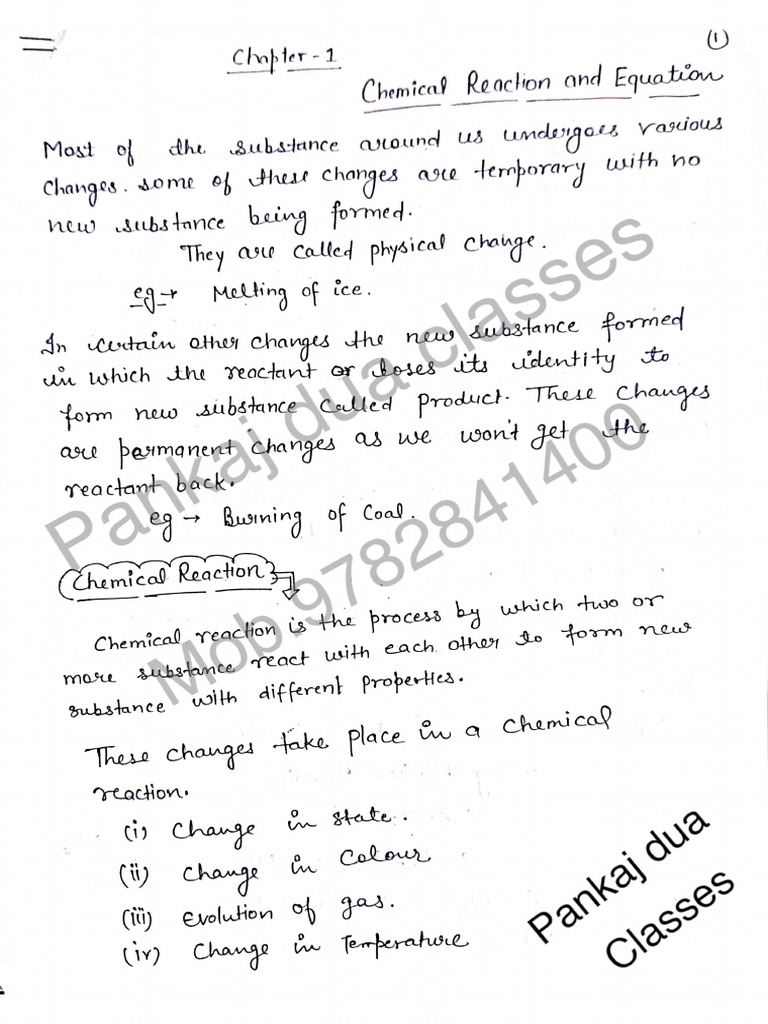 (1)
Chapter-1
Chemical Reaction and Equation
Most of the substance around us undergoes various
changes. some of these changes are temporary with no
new substance being formed.
They are called physical change.
eg→ Melting of ice.
In certain other changes the new substance formed
in which the reactant or loses its identity to
form new substance called product. These changes
are permanent changes as we won't get the
reactant back.
eg → Burning of Coal.
Chemical Reaction
Chemical reaction is the process by which two or
more substance react with each other to form new
substance with different properties.
These changes take place in a chemical
reaction.
(i) Change in state.
(ii) Change in Colour
(iii) Evolution of gas.
(iv) Change in Temperature
Pankaj dua classes
Mob.9782841400
Pankaj dua
Classes